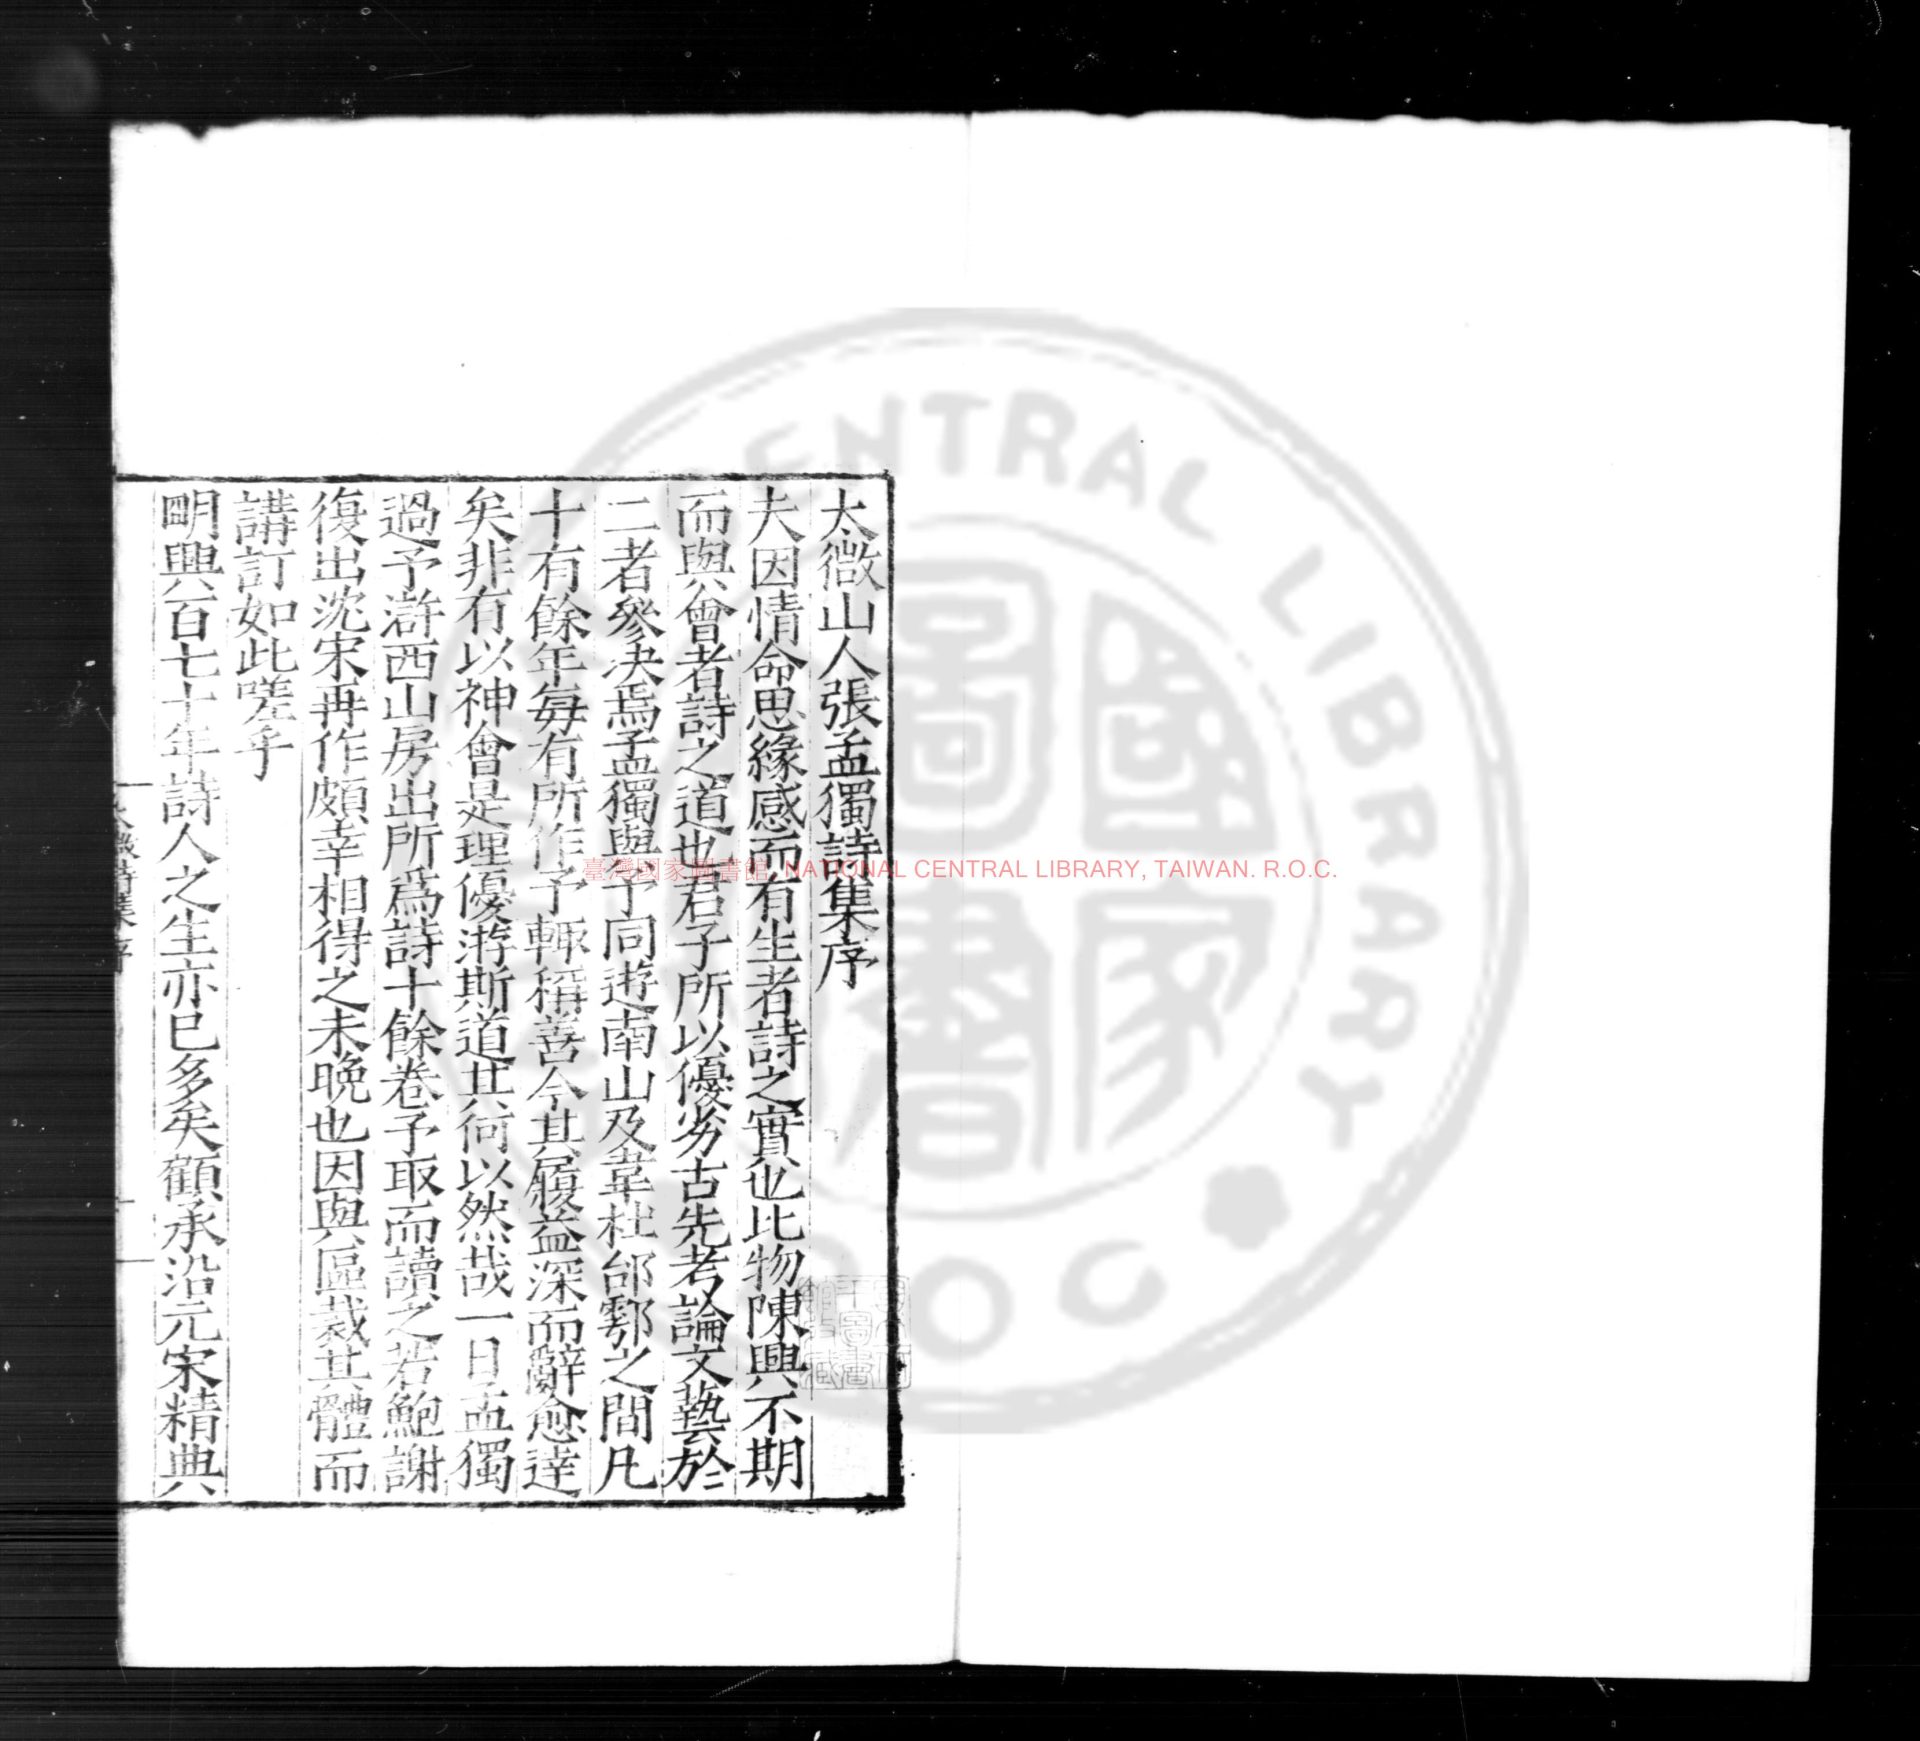 太微山人張孟獨詩集序
夫因情命思緣感而有生者詩之實也比物陳興不期
而與會者詩之道也君子所以優劣古先考論文藝於
二者參決焉孟獨與予同遊南山及韋杜邰鄠之間凡
十有餘年每有所作予輒稱善今其履益深而辭愈達
矣非有以神會是理優游斯道其何以然哉一日孟獨
過予滸西山房出所爲詩十餘卷予取而讀之若鮑謝
復出沈宋再作頗幸相得之未晚也因與區裁其體而
講訂如此嗟乎
明興百七十年詩人之生亦已多矣顧承沿元宋精典
太微詩集序
臺灣國家圖書館, NATIONAL CENTRAL LIBRARY, TAIWAN. R.O.C.
CENTRAL LIBRARY
國家圖書
R.O.C.